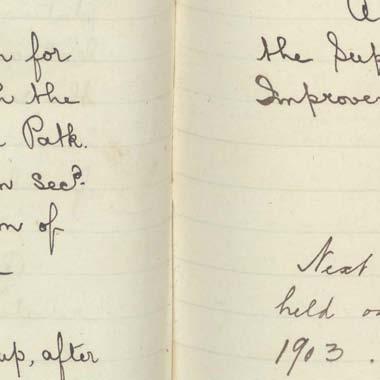 for
the
Path.
Secd.
of
up, after
the Sup
Improve
Next
held o
1903.